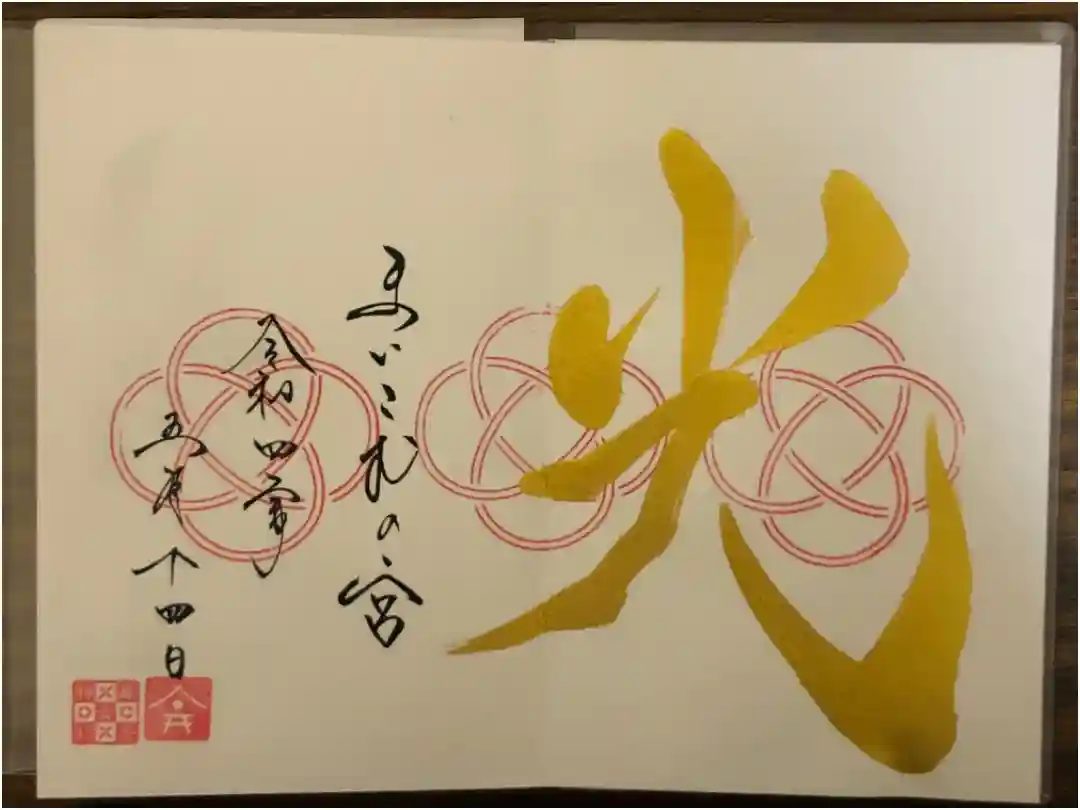 光
の宮
令和四年
五月十四日